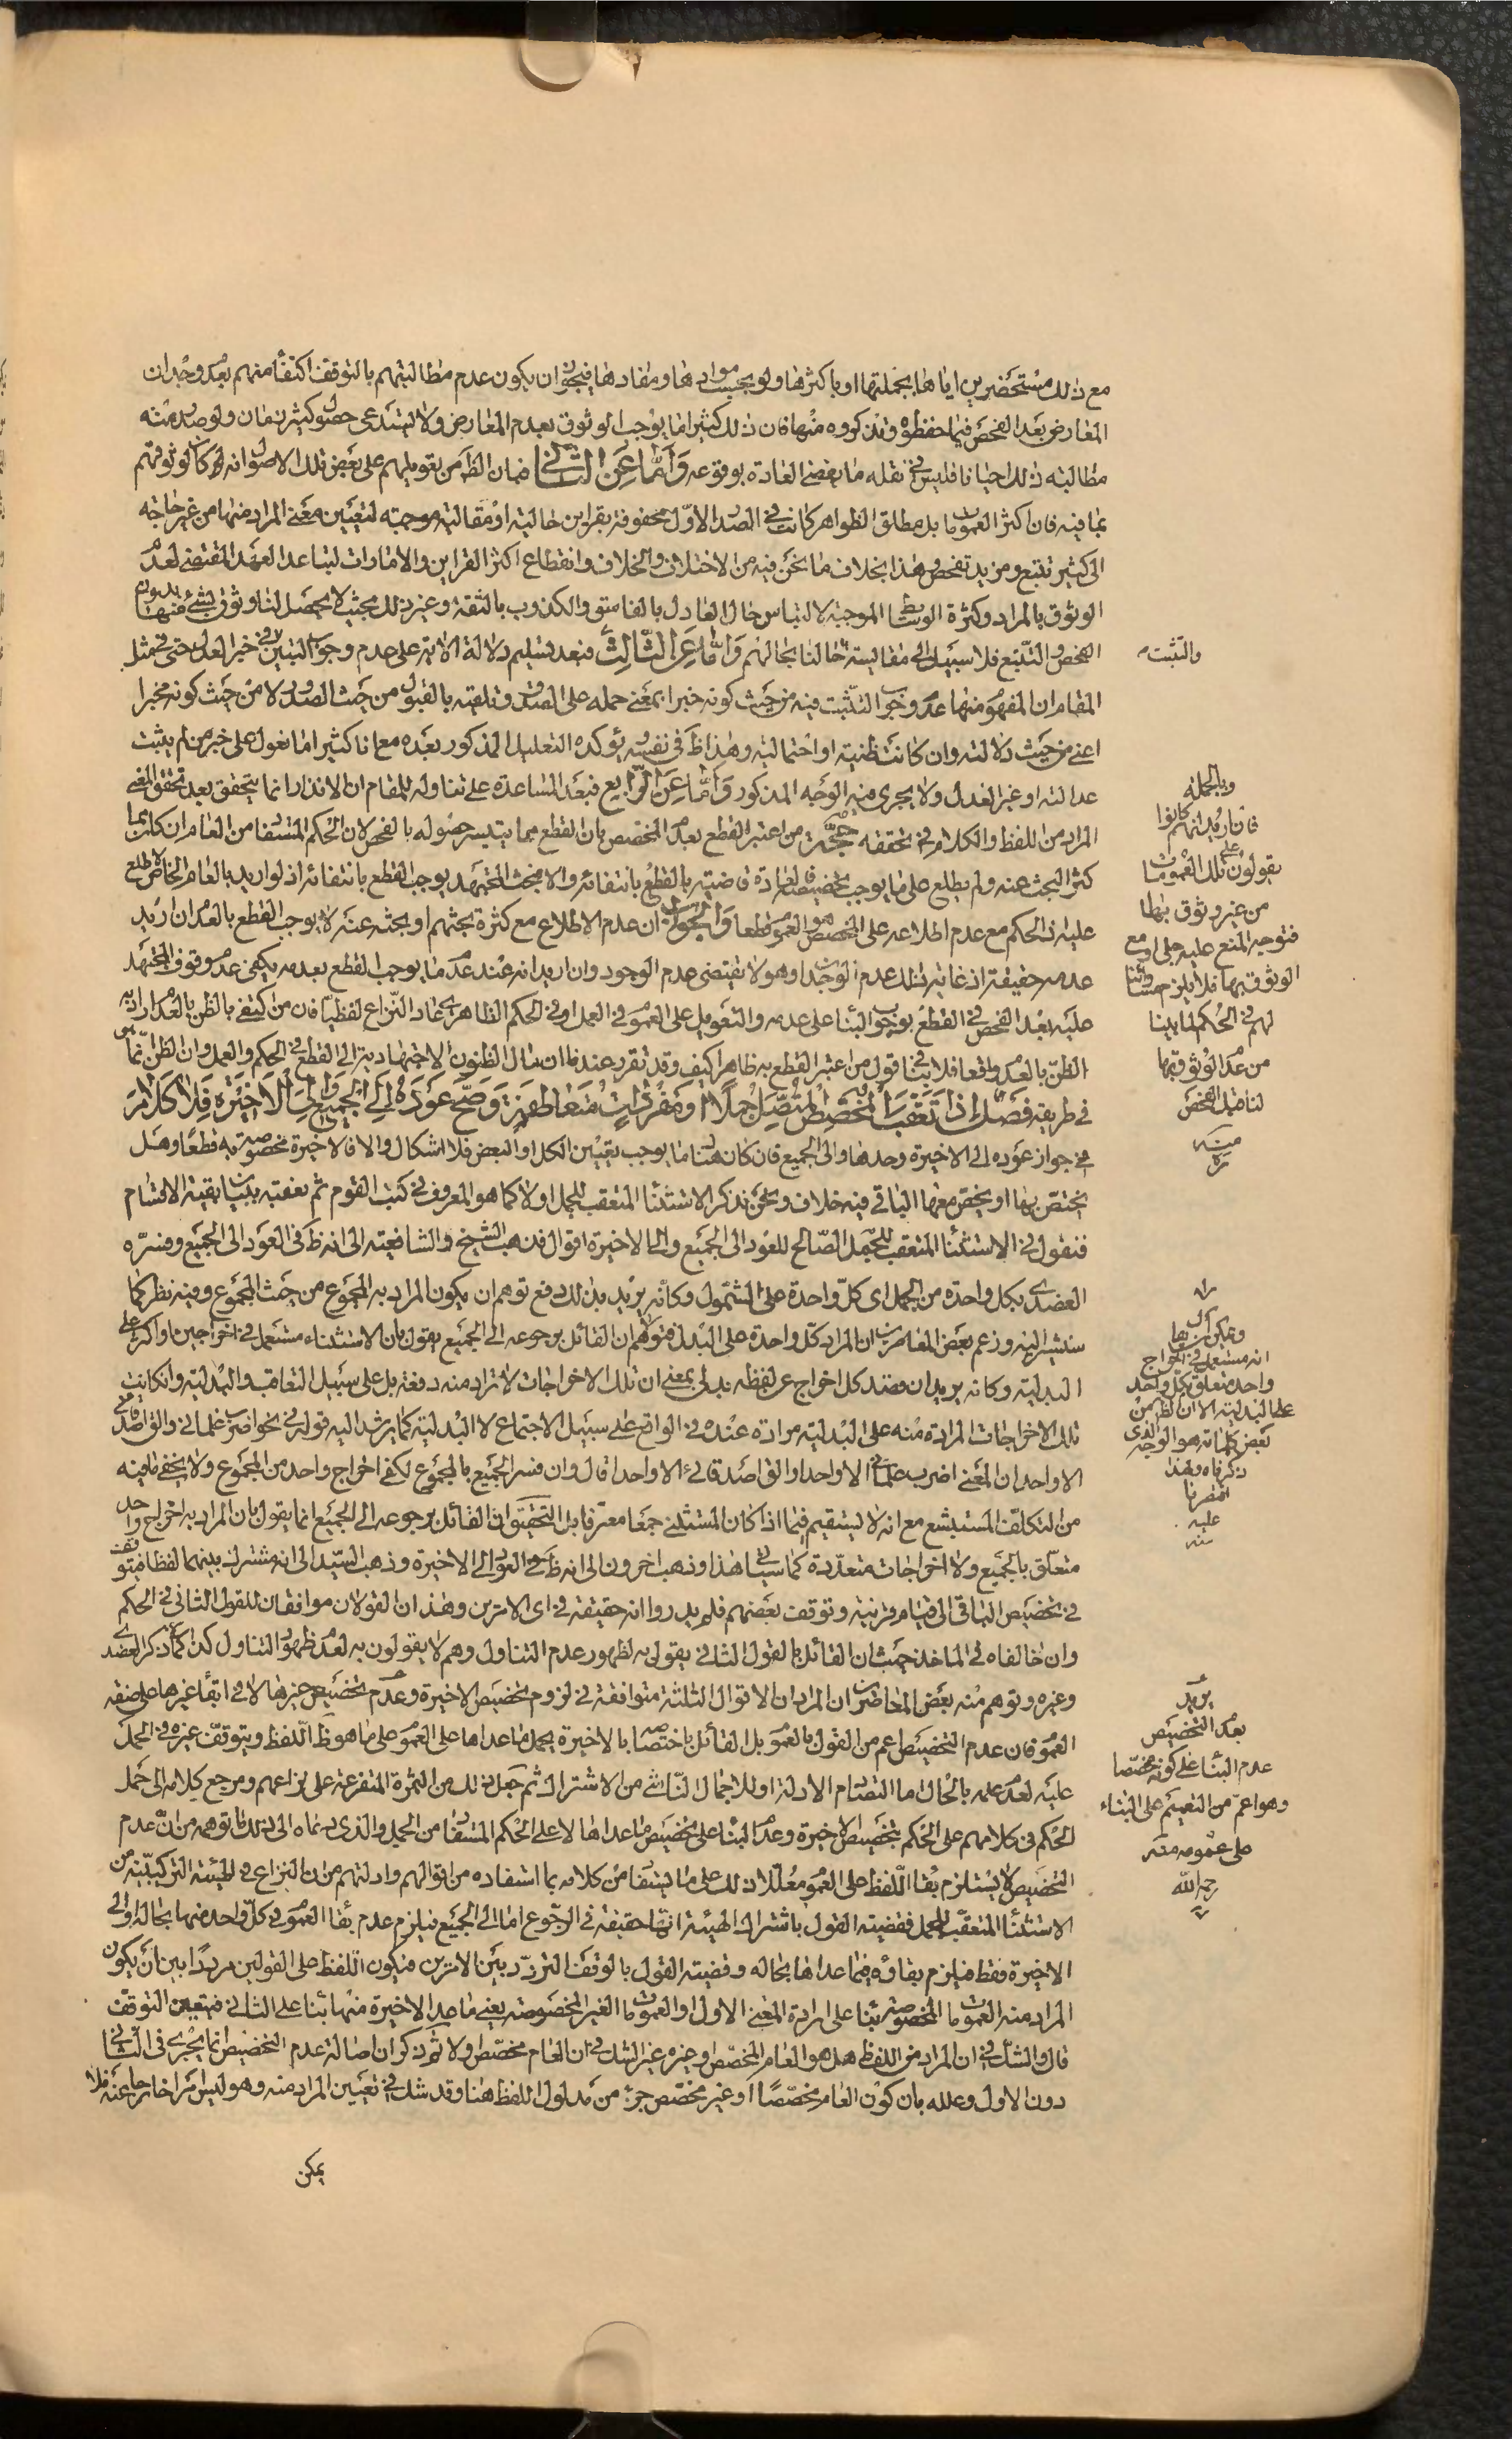 مع ذلك مستحضرين اياها بجملتها او باكثرها ولو بحسب موادها ومفادها فيجوز ان يكون عدم مطالبتهم بالتوقف اكتفاء منهم بعد وجدان
المعارض بعد الفحص فيما حفظوه وتذكروه منها فان ذلك كثيرا ما يوجب الوثوق بعدم المعارض ولا يستدعى حصوله كثير زمان ولو صدر منه
مطالبة ذلك احيانا فليس في نقله ما يقضى العادة بوقوعه وَاَمّا عَنِ الثّانى فبان الظ من تعويلهم على بعض تلك الاصول انه لمكان وثوقهم
بما فيه فان اكثر العمومات بل مطلق الظواهر كانت في الصدر الاول محفوفة بقراين حالية او مقالية موجبة لتعيين معنى المراد منها من غير حاجة
الى كثير تتبع ومزيد تفحص وهذا بخلاف ما نحن فيه من الاختلاف والخلاف وانقطاع اكثر القراين والامارات لتباعد العهد المقتضى لعدم
الوثوق بالمراد وكثرة الوسائط الموجبة لالتباس حال العادل بالفاسق والكذوب بالثقة وغير ذلك بحيث لا يحصل لنا وثوق بشئ منها بدون
الفحص والتتبع فلا سبيل الى مقايسة حالنا بحالهم وَاَمّا عَنِ الثّالِث فبعد تسليم دلالة الاية على عدم وجوب التبين في خبر العدل حتى في مثل
والتثبت
المقام ان المفهوم منها عدم وجوب التثبت فيه من حيث كونه خبرا بمعنى حمله على الصدق وتلقيه بالقبول من حيث الصدور لا من حيث كونه مخبرا
اعنى من حيث دلالته وان كانت ظنية او احتمالية وهذا ظ في نفسه يؤكده التعليل المذكور بعده مع انا كثيرا ما نعول على خبر من لم يثبت
عدالته او غير العدل ولا يجرى فيه الوجه المذكور وَاَمّا عَنِ الرّابع فبعد المساعدة على تناوله للمقام ان الانذار انما يتحقق بعد تحقق المعنى
المراد من اللفظ والكلام في تحققه حجّة من اعتبر القطع بعدم المخصص بان القطع مما يتيسر حصوله بالفحص لان الحكم المستفاد من العام ان كان مما
كثر البحث عنه ولم يطلع على ما يوجب تخصيصه فالعادة قاضية بالقطع بانتفائه والا فبحث المجتهد يوجب القطع بانتفائه اذ لو اريد بالعام الخاص لاطلع
عليه اذ الحكم مع عدم اطلاعه على المخصص هو العموم قطعا والجواب ان عدم الاطلاع مع كثرة بحثهم او بحثه عنه لا يوجب القطع بالعدم ان اريد
عدمه حقيقة اذ غاية ذلك عدم الوجدان وهو لا يقتضى عدم الوجود وان اريد انه عند عدم ما يوجب القطع بعدمه يكفى عدم وقوف المجتهد
عليه بعد الفحص في القطع بوجوب البناء على عدمه والتعويل على العموم في العمل او في الحكم الظاهرى عاد النزاع لفظيا فان من اكتفى بالظن بالعدم اراد به
الظن بالعدم واقعا فلا ينافى قول من اعتبر القطع به ظاهرا كيف وقد تقرر عندنا ان مال الظنون الاجتهادية الى القطع في الحكم والعمل وان الظن انما هو
في طريقه فَصْل اِذا تَعَقَّبَ المُخَصِّص المُتَّصِل جُمَلًا او مُفْرَداتٍ مُتَعاطِفَة وَصَحَّ عَوْدُهُ اِلَى الجَميع وَاِلَى الاَخيرَةِ فَلا كَلامَ
في جواز عوده الى الاخيرة وحدها والى الجميع فان كان هناك ما يوجب تعيين الكل او البعض فلا اشكال والا فالاخيرة مخصوصة به قطعا وهل
يختص بها او يخص معها الباقى فيه خلاف ونحن نذكر الاستثناء المتعقب للجمل اولا كما هو المعروف في كتب القوم ثم نعقبه ببيان بقية الاقسام
فنقول في الاستثناء المتعقب للجمل الصالح للعود الى الجميع والى الاخيرة اقوال فذهب الشيخ والشافعية الى انه ظ في العود الى الجميع وفسره
العضدى بكل واحدة من الجمل اى كل واحدة على الشمول وكانه يريد بذلك دفع توهم ان يكون المراد به المجموع من حيث المجموع وفيه نظر كما
سنشير اليه وزعم بعض المعاصرين ان المراد كل واحدة على البدل فتوهم ان القائل برجوعه الى الجميع يقول بان الاستثناء مستعمل في اخراجين او اكثر على
البدلية وكانه يريد ان قصد كل اخراج عن لفظه بدلى بمعنى ان تلك الاخراجات لا تراد منه دفعة بل على سبيل التعاقب والبدلية وان كانت
تلك الاخراجات المرادة منه على البدلية مرادة عنده في الواقع على سبيل الاجتماع لا البدلية كما يرشد اليه قوله في نحو اضرب غلمانى والق اصدقائى
الا واحدا ان المعنى اضرب غلمانى الا واحدا والق اصدقائى الا واحدا قال وان فسر الجميع بالمجموع لكفى اخراج واحد من المجموع ولا يخفى ما فيه
من التكلف المستبشع مع انه لا يستقيم فيما اذا كان المستثنى جمعا معرفا بل التحقيق ان القائل برجوعه الى الجميع انما يقول بان المراد به اخراج واحد
متعلق بالجميع ولا اخراجات متعددة كما سيأتى هذا وذهب اخرون الى انه ظ في العود الى الاخيرة وذهب السيد الى انه مشترك بينهما لفظا فيتوقف
في تخصيص الباقى الى قيام قرينة وتوقف بعضهم فلم يدروا انه حقيقة في اى الامرين وهذان القولان موافقان للقول الثانى في الحكم
وان خالفاه في الماخذ حيث ان القائل بالقول الثانى يقول به لظهور عدم التناول وهم لا يقولون به لعدم ظهور التناول كذا ذكر العضدى
وغيره وتوهم منه بعض المعاصرين ان المراد ان الاقوال الثلثة متوافقة في لزوم تخصيص الاخيرة وعدم تخصيص غيرها لا في ابقاء غيرها على صفة
العموم فان عدم التخصيص اعم من القول بالعموم بل القائل باختصاصه بالاخيرة يحمل ما عداها على العموم على ما هو ظ اللفظ ويتوقف غيره في الحمل
عليه لعدم علمه بالحال اما لتصادم الادلة او للاجمال الناشى من الاشتراك ثم جعل ذلك من الثمرة المتفرعة على نزاعهم ومرجع كلامه الى حمل
الحكم في كلامهم على الحكم بتخصيص الاخيرة وعدم البناء على تخصيص ما عداها لا على الحكم المستفاد من الجمل والذى دعاه الى ذلك ما توهمه من ان عدم
التخصيص لا يستلزم بقاء اللفظ على العموم معللا ذلك على ما يستفاد من كلامه بما استفاده من اقوالهم وادلتهم من ان النزاع في الهيئة التركيبية من
الاستثناء المتعقب للجمل فقضية القول باشتراك الهيئة انها حقيقة في الرجوع اما الى الجميع فيلزم عدم بقاء العموم في كل واحد منها بحاله او الى
الاخيرة فقط فيلزم بقاؤه فيما عداها بحاله وقضية القول بالوقف التردد بين الامرين فيكون اللفظ على القولين مرددا بين ان يكون
المراد منه العمومات المخصوصة بناء على ارادة المعنى الاول او العمومات الغير المخصوصة يعنى ما عدا الاخيرة منها بناء على الثانى فيتعين التوقف
قال والشك في ان المراد من اللفظ هل هو العام المخصص او غيره غير الشك في ان العام مخصص ولا ثم ذكر ان اصالة عدم التخصيص انما يجرى في الثانى
دون الاول وعلله بان كون العام مخصصا او غير مخصص جزء من مدلول اللفظ هنا وقد شك في تعيين المراد منه وهو ليس امرا خارجا عنه فلا
يمكن
وبالجملة
فان اريد انهم كانوا
يعولون على تلك العمومات
من غير وثوق بها
فتوجه المنع عليه جلى او مع
الوثوق بها فلا يلزم مساواتنا
لهم في الحكم لما بينا
من عدم الوثوق بها
لنا قبل الفحص
منه
ويمكن ان
انه مستعمل في اخراج
واحد متعلق بكل واحد
على البدلية الا ان الظ من
بعض كلماته هو الوجه الذى
ذكرناه ولهذا
اقتصرنا
عليه
منه
يريد
بعدم التخصيص
عدم البناء على كونه مخصصا
وهو اعم من التعميم على البناء
على عمومه منه
رحمه الله